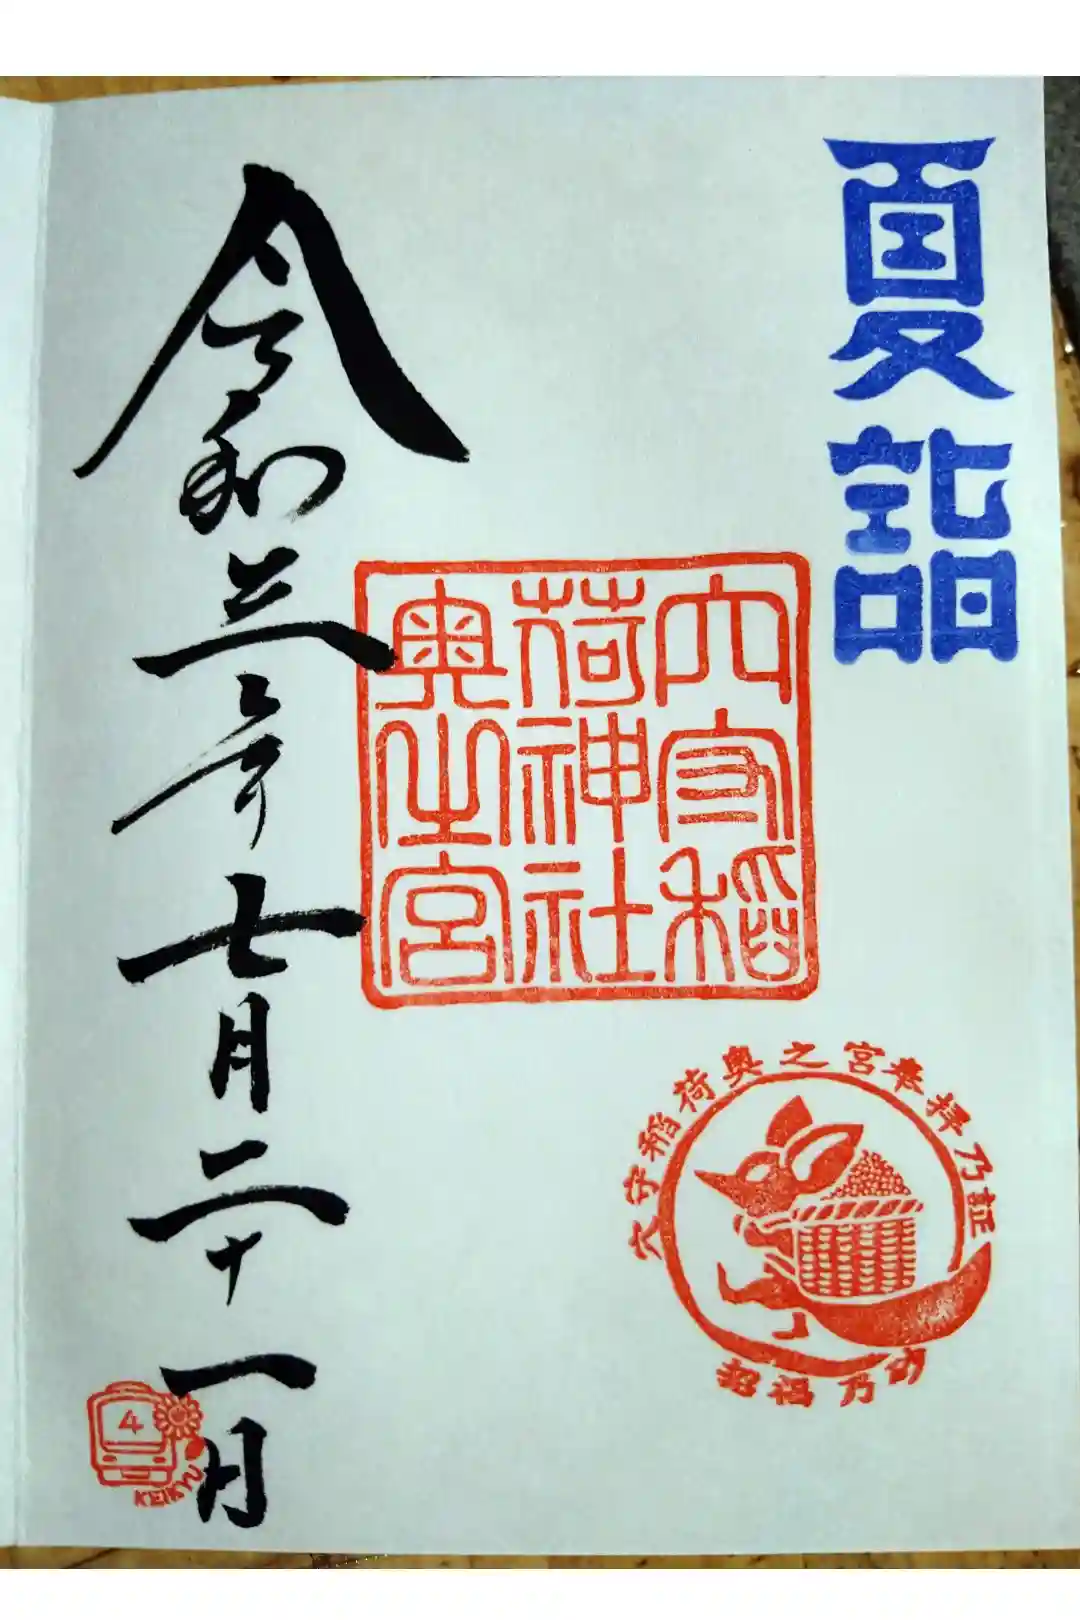 夏詣
穴守稲
荷神社
奥之宮
穴守稲荷奥之宮奉拝乃証
招福乃砂
令和三年七月二十一日
4
KEIKYU